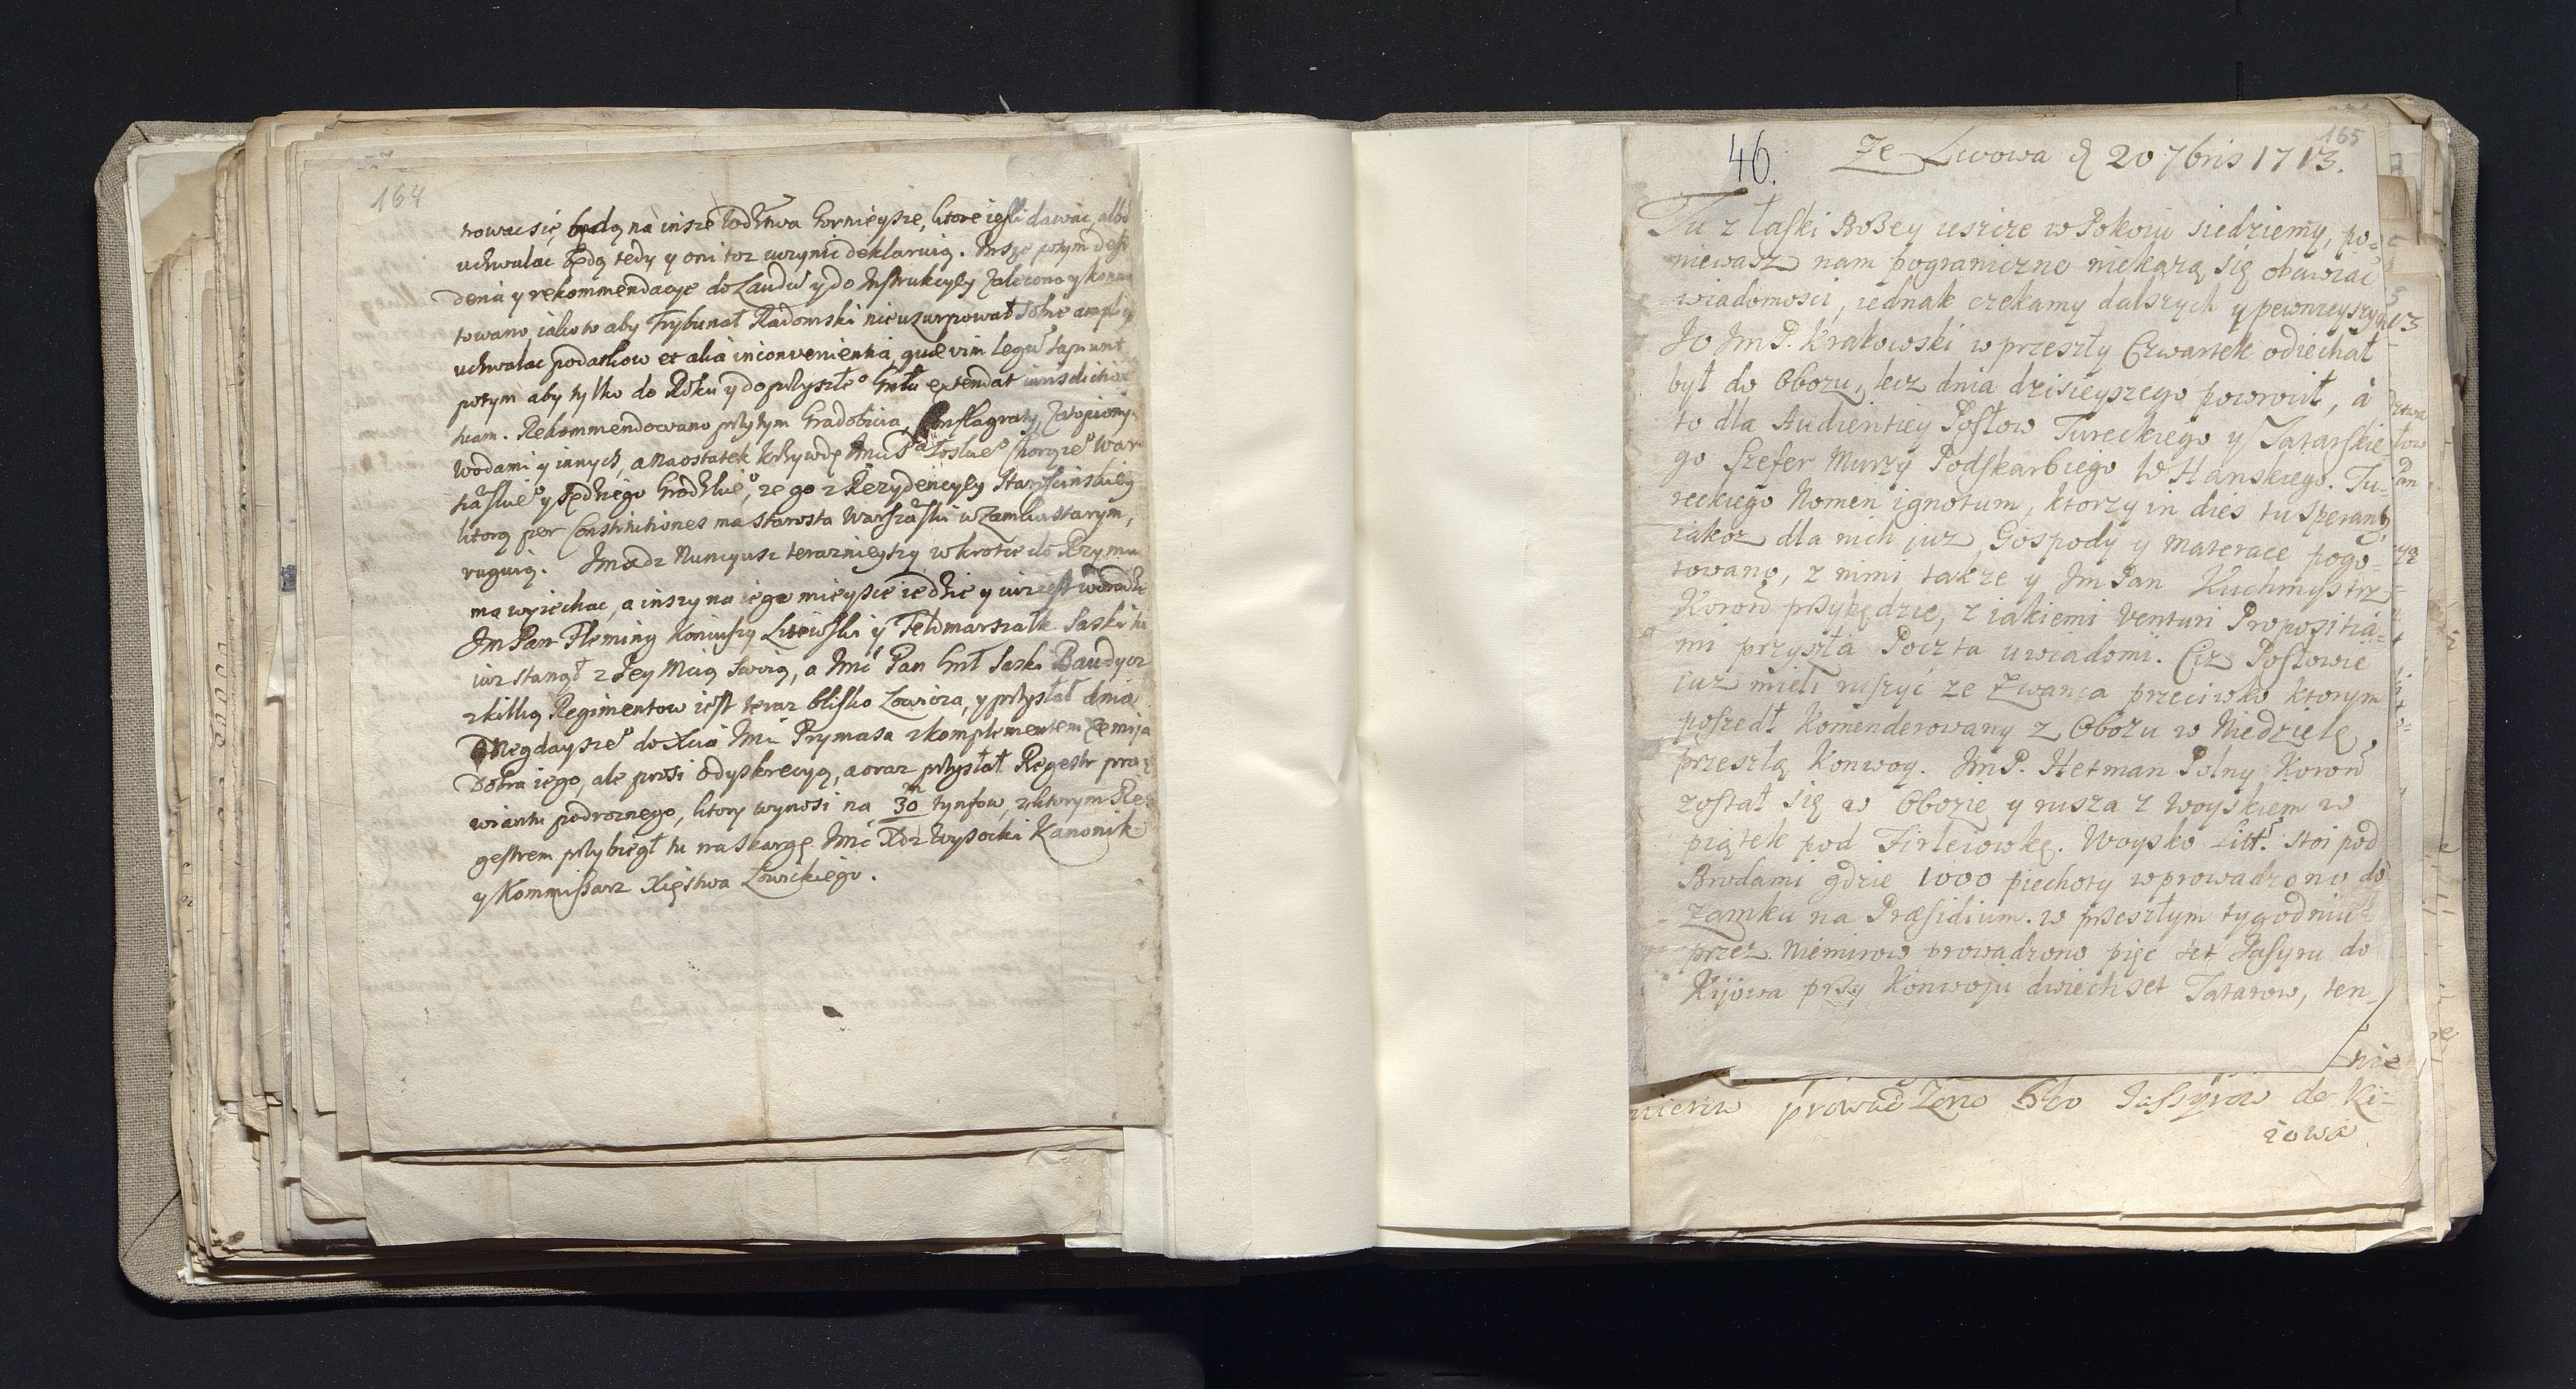 164
rowac się będą na insze Wodztwa hornieysze, ktore iesli dawac albo
uchwalac będą tedy y oni toz uczynic deklaruią. Insze potym desi
deria y rekommendacye do Laudu y do Instrukcyey zalecono y konno
towano, iako to aby Trybunał Radomski nie uzurpował sobie amplius
uchwalac podatkow et alia inconvenientia, quæ vim legu sapiunt
potym aby tylko do Roku y do przyszłeo Gnłu extendat iurisdictio
nam. Rekommendowano przytym Gradobicia, Conflagraty, zatopionych
wodami y innych, a naostatek krzywdę
y Sędziego Grodzkieo, ze go z Rezydencyey Starościnskiey
ktorą per Constitutiones ma Starosta Warszaski w Zamku starym,
ruguią. Imć Xdz Nuncyusz teraznieyszy wkrotce do Rzymu
ma wyiechac, a inszy na iego mieysce iedzie y iuz iest w drodze
Jm Pan Fleming Koniuszy Litewski y Feldmarszałk Saski tu
iuz stanął z Jey Mcią swoią, a Imć Pan Gnł Saski Baudycz
z kilką Regimentow iest teraz blisko Łowicza, y przysłał dnia
Onegdayszeo do Xcia Imci Prymasa z komplementem ze mija
Dobra iego, ale prosi o dyskrecyą, a oraz przysłał Regestr pro
wiantu podroznego, ktory wynosi na 30 m tynfow, z ktorym Re
gestrem przybiegł tu na skargę Imć Xdz Wysocki Kanonik
y Kommissarz Xięstwa Łowickiego.
165
46. Ze Lwowa d 20 7bris 1713.
Tu z łaski Bożey ieszcze w Pokoiu siedziemy, po-
niewasz nam pograniczne niekażą się obawiać
wiadomosci, iednak czekamy dalszych y pewnieyszych
Jo Jm P. Krakowski w przeszły Czwartek odiechał
był do Obozu, lecz dnia dzisieyszego powrocił, a
to dla Audientiey Posłow Tureckiego y Tatarskie-
go Szefer Murzy Podskarbiego W Hanskiego. Tu-
reckiego Nomen ignotum, ktorzy in dies tu sperant,
iakoz dla nich juz Gospody y Materace pogo-
towano, z nimi takze y Jm Pan Kuchmystrz
Koron przybędzie, z iakiemi venturi Propositia-
mi przyszła Poczta uwiadomi. Ciz Posłowie
iuz mieli ruszyć ze Zwanca przeciwko ktorym
poszedł Komenderowany z Obozu w Niedzielę
przeszłą Konwoy. Jm P. Hetman Polny Koron
został się w Obozie y rusza z Woyskiem w
piątek pod Firleiowkę. Woysko Litt. stoi pod
Brodami gdzie 1000 piechoty wprowadzono do
Zamku na Præsidium. w przeszłym tygodniu
przez Niemirow prowadzono pięc set Jasyru do
Kijowa przy Konwoju dwiechset Tatarow, ten-
nie
mierow prowadzono 500 Jassyrow do Ki-
iowa